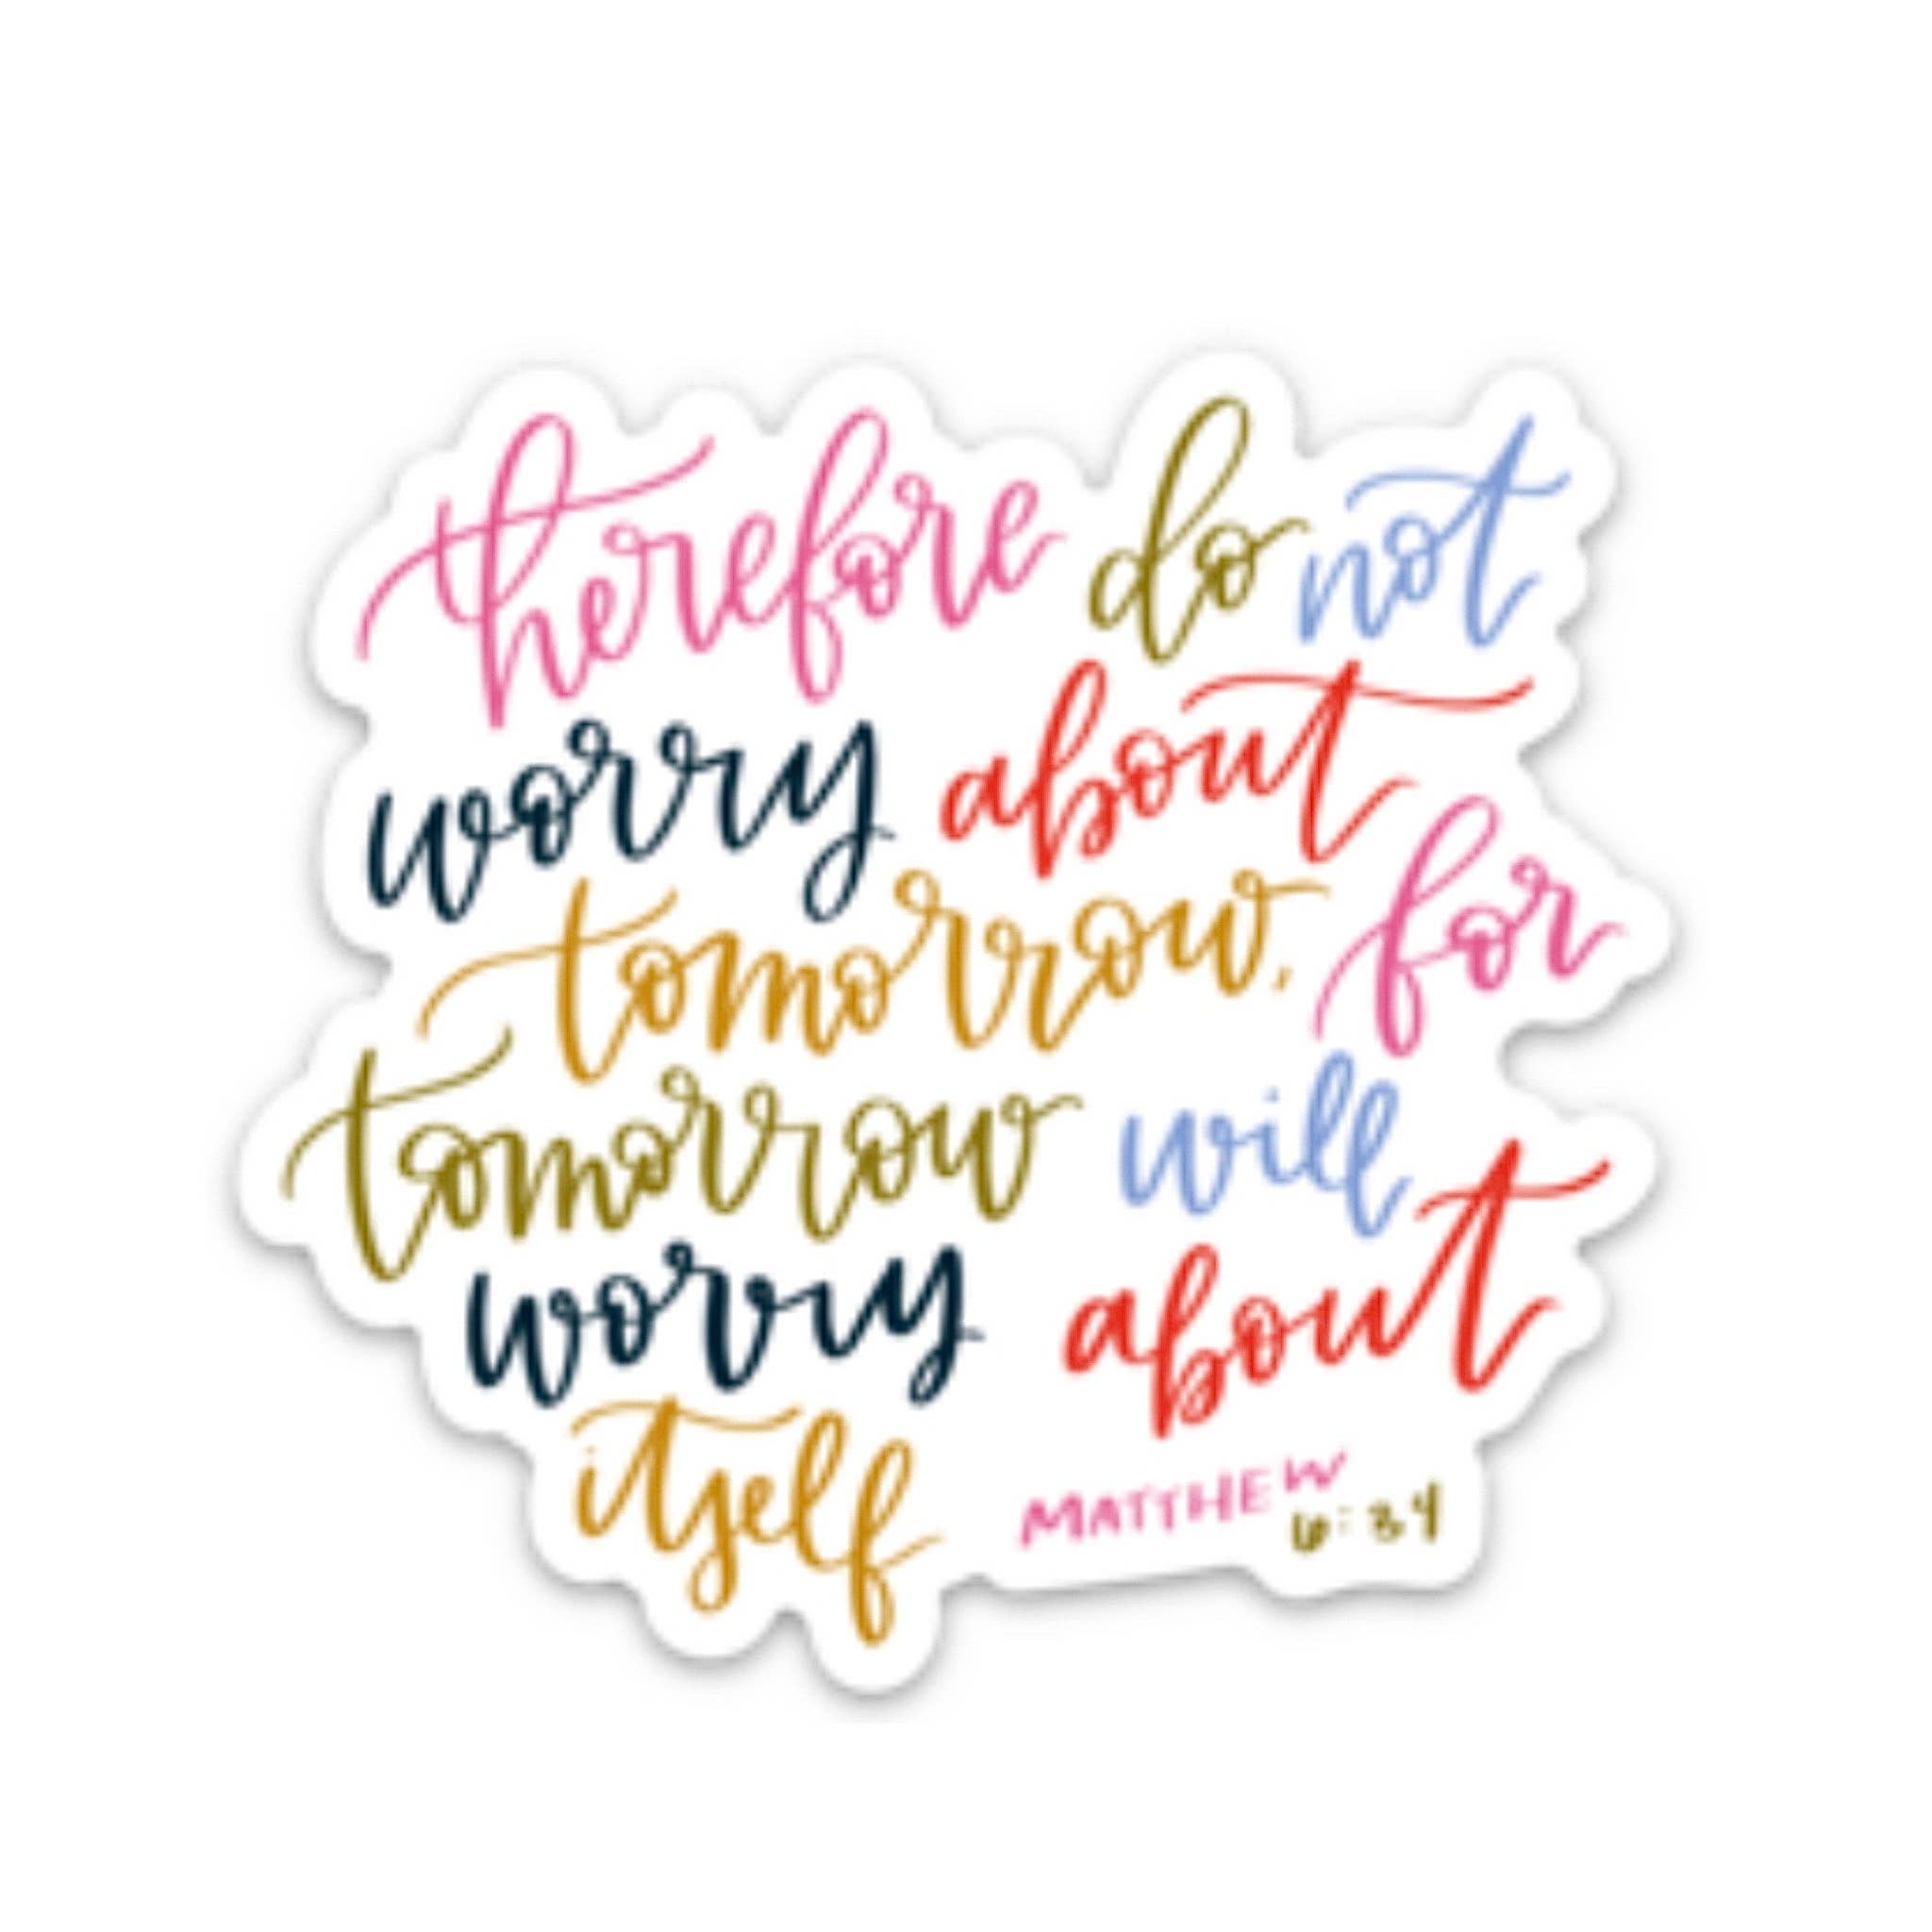 therefore do not
worry about
tomorrow, for
tomorrow will
worry about
itself
MATTHEW
6:34